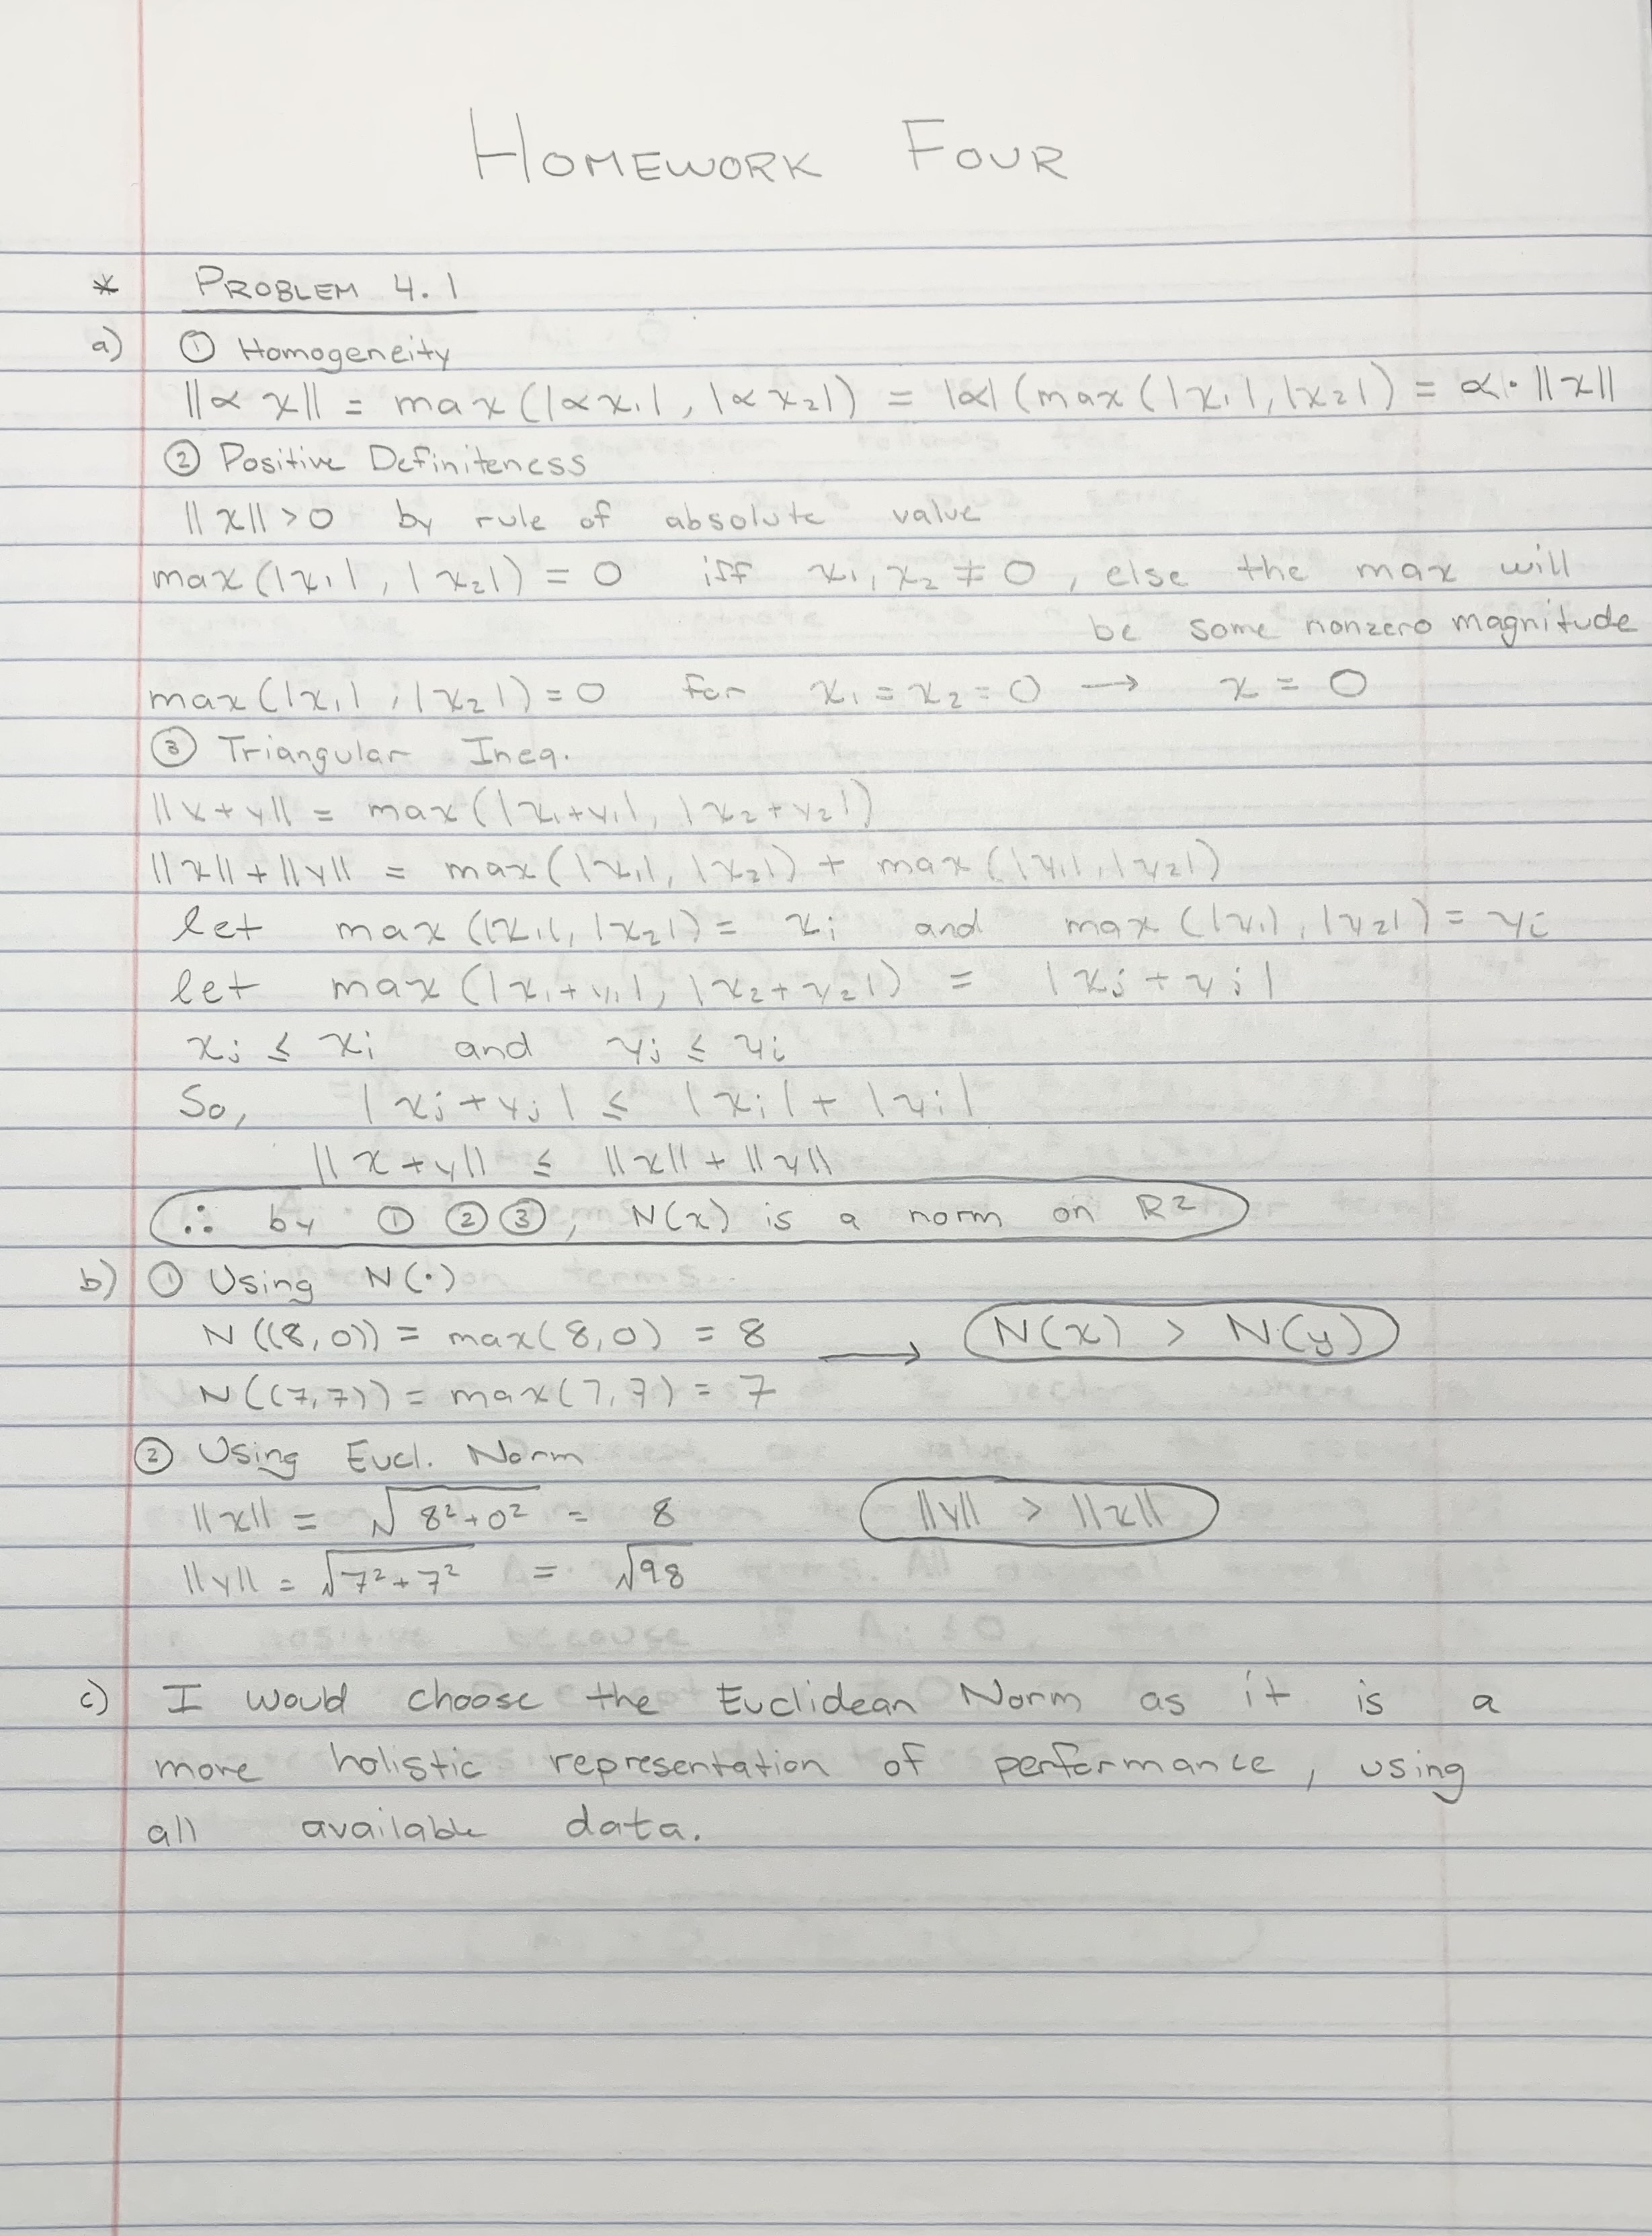 HOMEWORK FOUR
* PROBLEM 4.1
a) ① Homogeneity
||αx|| = max(|αx₁|, |αx₂|) = |α|(max(|x₁|,|x₂|) = α|·||x||
② Positive Definiteness
||x|| > 0 by rule of absolute value
max(|x₁|, |x₂|) = 0 iff x₁,x₂ ≠ 0, else the max will
be some nonzero magnitude
max(|x₁|,|x₂|)=0 for x₁=x₂=0 → x = 0
③ Triangular Ineq.
||x+y|| = max(|x₁+y₁|, |x₂+y₂|)
||x||+||y|| = max(|x₁|, |x₂|) + max(|y₁|,|y₂|)
let max(|x₁|, |x₂|) = xᵢ and max(|y₁|, |y₂|) = yᵢ
let max(|x₁+y₁|, |x₂+y₂|) = |xⱼ+yⱼ|
xⱼ ≤ xᵢ and yⱼ ≤ yᵢ
So, |xⱼ+yⱼ| ≤ |xᵢ|+|yᵢ|
||x+y|| ≤ ||x||+||y||
∴ by ① ② ③, N(x) is a norm on R²
b) ① Using N(·)
N((8,0)) = max(8,0) = 8 → N(x) > N(y)
N((7,7)) = max(7,7) = 7
② Using Eucl. Norm
||x|| = √8²+0² = 8 ||y|| > ||x||
||y|| = √7²+7² = √98
c) I would choose the Euclidean Norm as it is a
more holistic representation of performance, using
all available data.